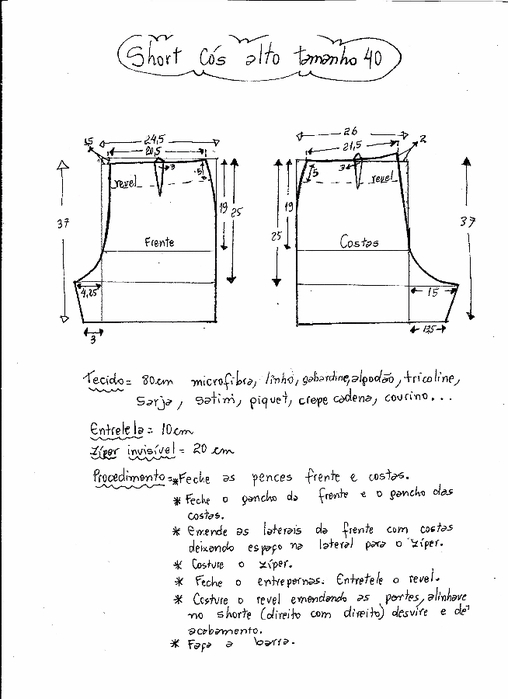 Short Cós alto tamanho 40
24,5
1,5
20,5
3
5
revel
19
25
37
Frente
4,25
3
26
2
21,5
3
5
revel
19
25
37
Costas
15
13,5
Tecido = 80cm microfibra, linho, gabardine, algodão, tricoline,
sarja, satini, piquet, crepe cadena, courino...
Entretela = 10cm
Zíper invisível = 20 cm
Procedimento = * Feche as pences frente e costas.
* Feche o gancho da frente e o gancho das
costas.
* Emende as laterais da frente com costas
deixando espaço na lateral para o zíper.
* Costure o zíper.
* Feche o entrepernas. Entretele o revel.
* Costure o revel emendando as partes, alinhave
no shorte (direito com direito) desvire e dê
acabamento.
* Faça a barra.